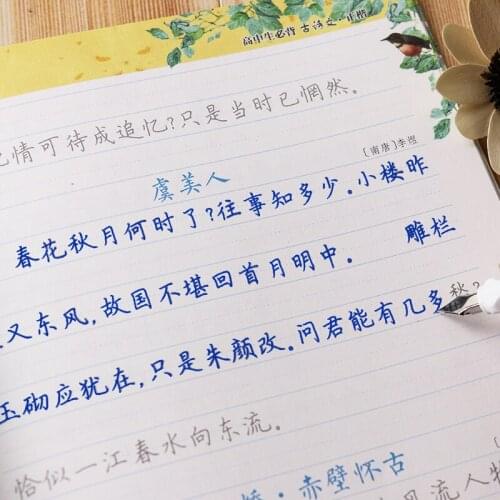 高中生必背古诗文·正楷
情可待成追忆?只是当时已惘然。
虞美人
[南唐]李煜
春花秋月何时了?往事知多少。小楼昨
又东风,故国不堪回首月明中。 雕栏
玉砌应犹在,只是朱颜改。问君能有几多愁?
恰似一江春水向东流。
·赤壁怀古
风流人